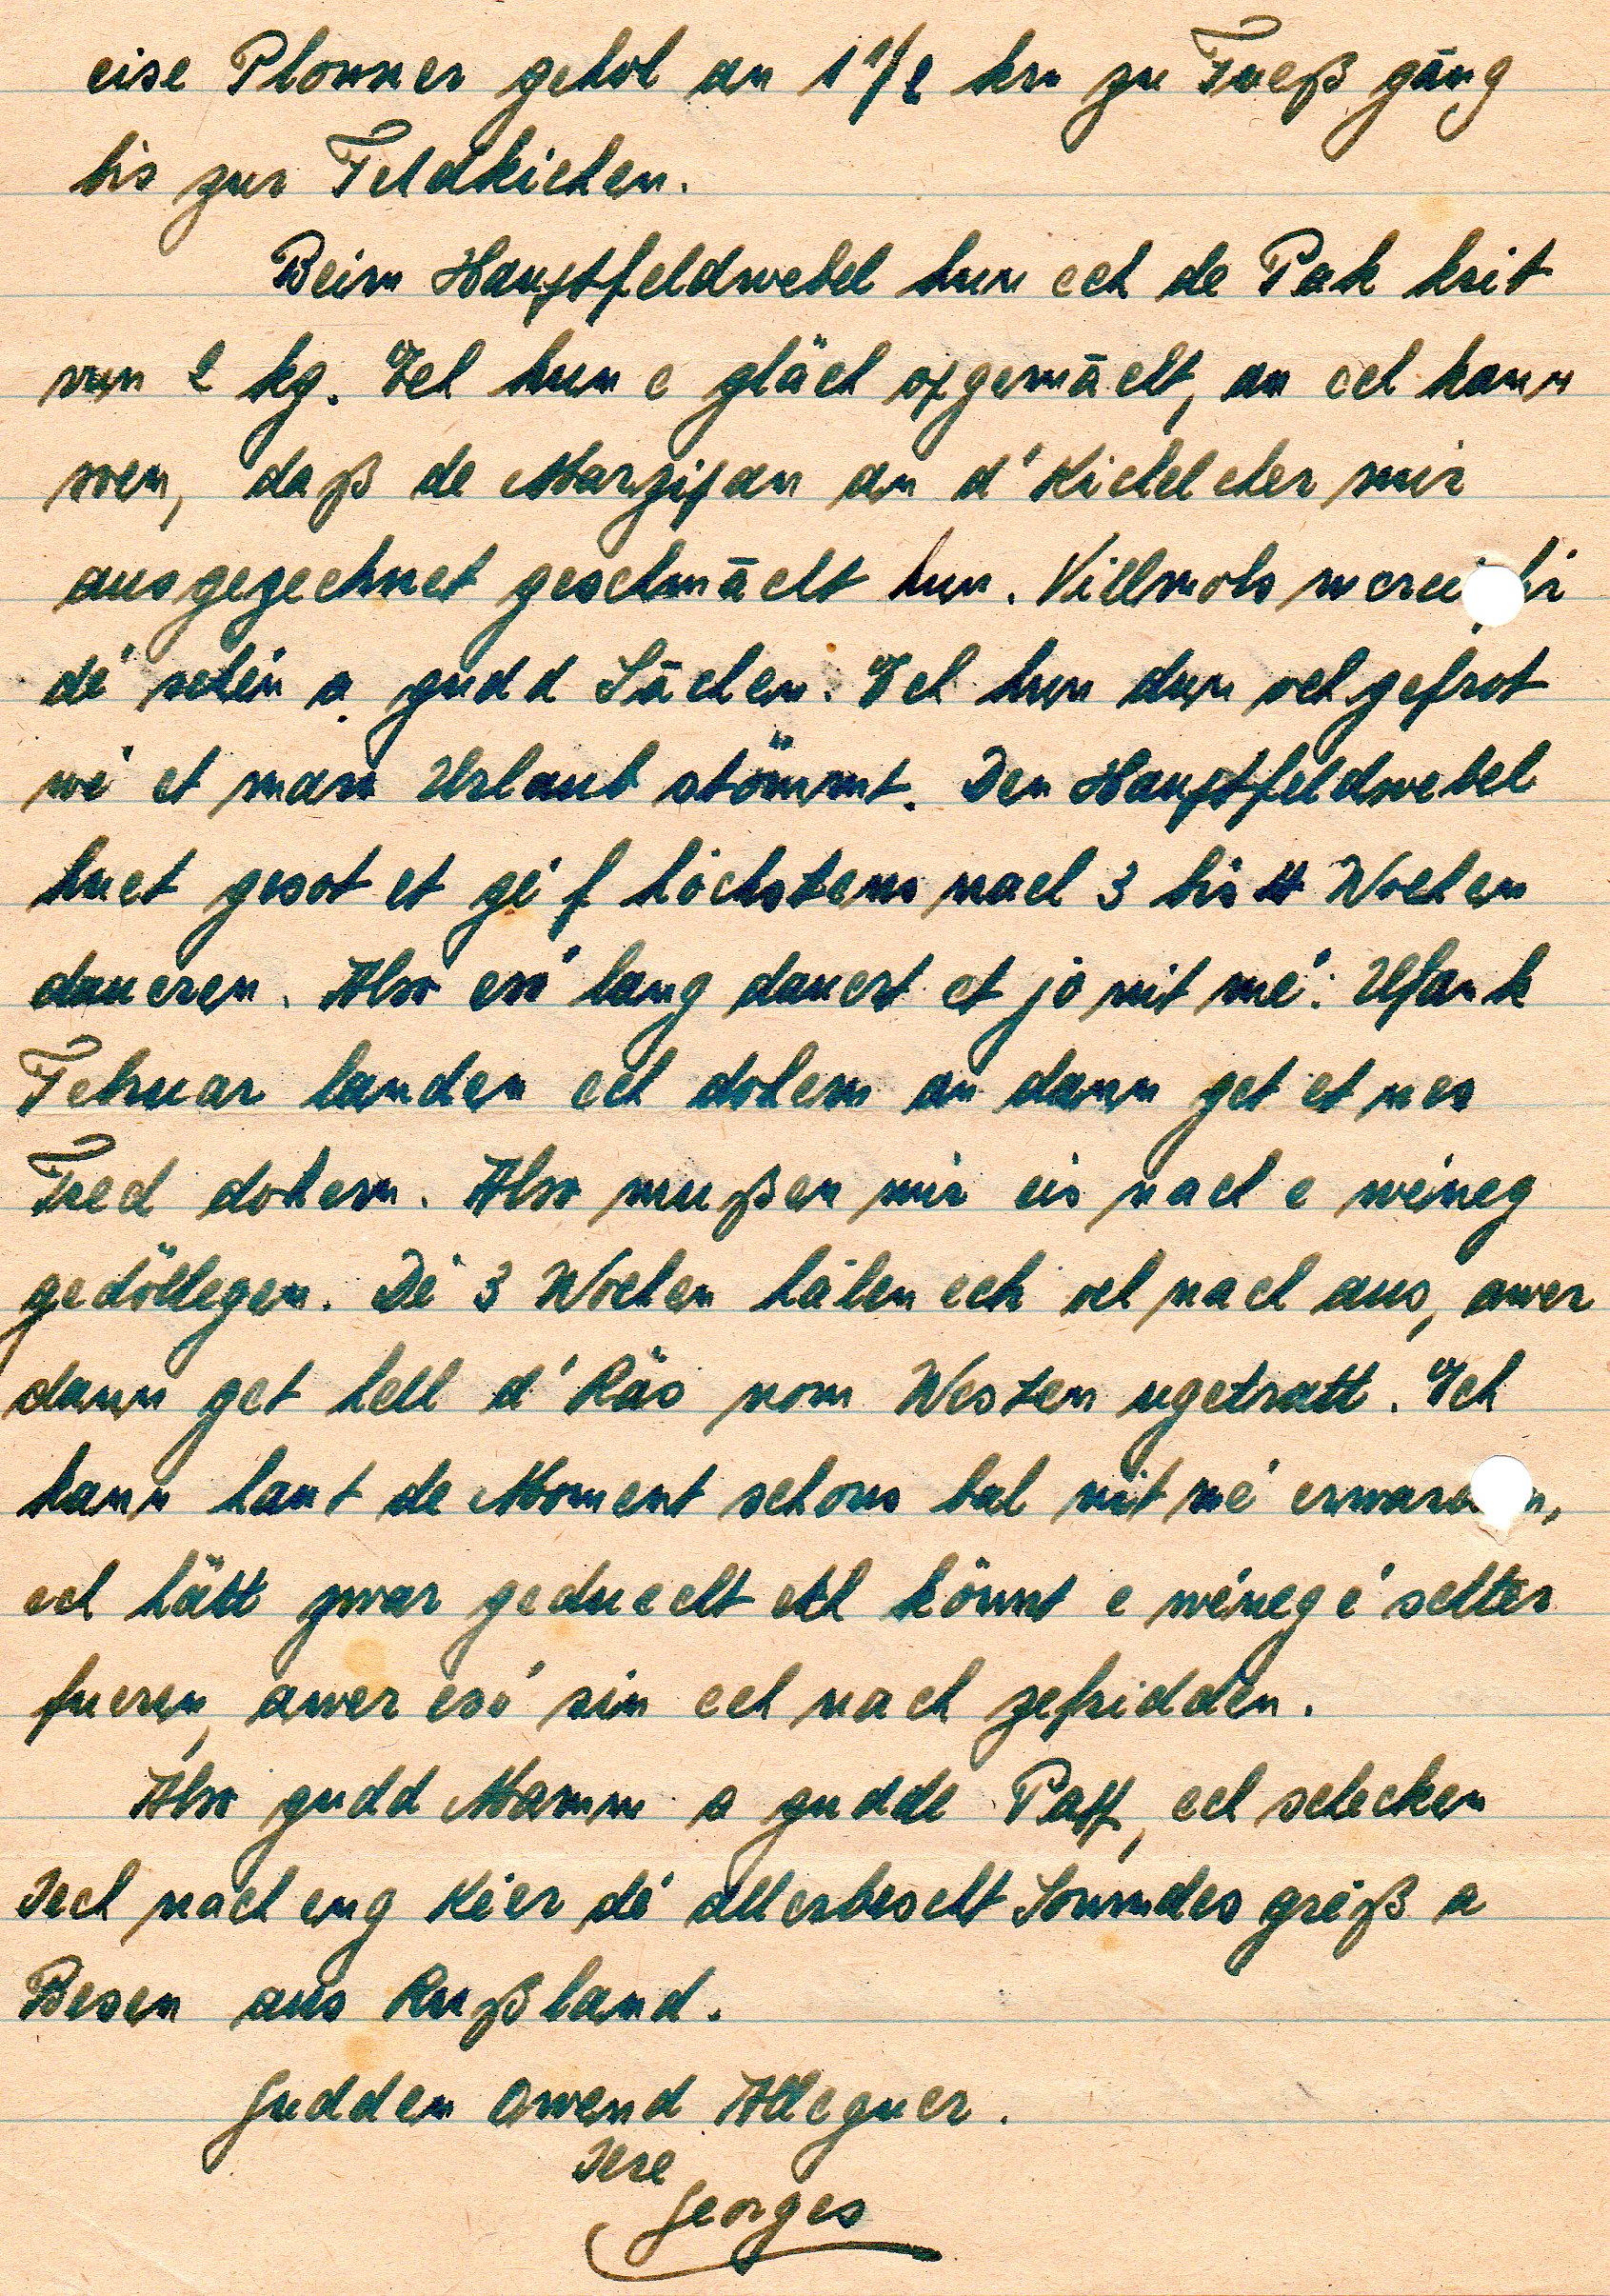 eise Plonner geholl an 1 1/2 km zu Fueß gāng
bis zur Feldkichen.
Beim Hauptfeldwebel hun ech de Pak krit
vun 2 kg. Ech hun e gläch opgemācht, an ech kann
soen, daß de Marzipan an d' Kichelcher mir
ausgezechnet geschmācht hun. Villmols merci fir
dé schéin a gudd Sāchen. Ech hun dun och gefrot
wé et mam Urlaub stömmt. Den Hauptfeldwebel
huet gesot et géif höchstens nach 3 bis 4 Wochen
daueren. Also esó lang dauert et jo nit mé. Ufank
Februar landen ech dohem an dann get et nes
Fred dohem. Also mußen mir eis nach e wéineg
gedöllegen. Dé 3 Wochen hālen ech och nach aus, awer
dann get hell d' Räs vom Westen ugetratt. Ech
kann haut de Moment schons bal nit mé erwarden,
ech hätt zwar geduecht ech könnt e wéneg é'schter
fueren, awer esó sin ech nach zefridden.
Also gudd Mamm a gudde Papp, ech schecken
Iech nach eng Kéier dé allerbescht Sonndes gréiß a
Besen aus Rußland.
Gudden Owend Alleguer.
Iere
Georges